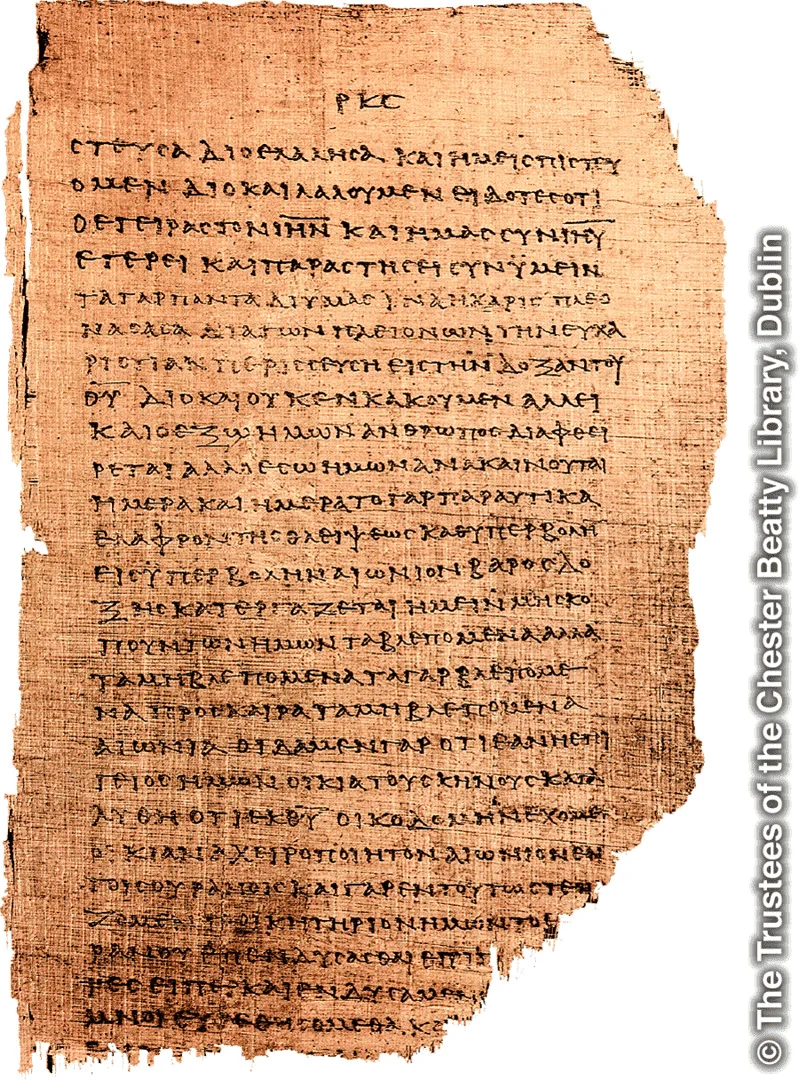 ΡΚϚ
ϹΤΕΥϹΑ ΔΙΟΕΛΑΛΗϹΑ ΚΑΙΗΜΕΙϹΠΙϹΤΕΥ
ΟΜΕΝ ΔΙΟΚΑΙΛΑΛΟΥΜΕΝ ΕΙΔΟΤΕϹΟΤΙ
ΟΕΓΕΙΡΑϹΤΟΝΙ̅Η̅Ν̅ ΚΑΙΗΜΑϹϹΥΝΙ̅Η̅Υ̅
ΕΓΕΡΕΙ ΚΑΙΠΑΡΑϹΤΗϹΕΙϹΥΝΫΜΕΙΝ
ΤΑΓΑΡΠΑΝΤΑΔΙΥΜΑϹΙΝΑΗΧΑΡΙϹΠΛΕΟ
ΝΑϹΑϹΑ ΔΙΑΤΩΝΠΛΕΙΟΝΩΝΤΗΝΕΥΧΑ
ΡΙϹΤΙΑΝΠΕΡΙϹϹΕΥϹΗ ΕΙϹΤΗΝΔΟΞΑΝΤΟΥ
Θ̅Υ̅ ΔΙΟΚΑΙΟΥΚΕΝΚΑΚΟΥΜΕΝ ΑΛΛΕΙ
ΚΑΙΟΕΞΩΗΜΩΝΑΝΘΡΩΠΟϹΔΙΑΦΘΕΙ
ΡΕΤΑΙ ΑΛΛΟΕϹΩΗΜΩΝΑΝΑΚΑΙΝΟΥΤΑΙ
ΗΜΕΡΑΚΑΙΗΜΕΡΑΤΟΓΑΡΠΑΡΑΥΤΙΚΑ
ΕΛΑΦΡΟΝΤΗϹΘΛΕΙΨΕΩϹΚΑΘΥΠΕΡΒΟΛΗ
ΕΙϹΫΠΕΡΒΟΛΗΝΑΙΩΝΙΟΝΒΑΡΟϹΔΟ
ΞΗϹΚΑΤΕΡΓΑΖΕΤΑΙΗΜΕΙΝΜΗϹΚΟ
ΠΟΥΝΤΩΝΗΜΩΝΤΑΒΛΕΠΟΜΕΝΑΑΛΛΑ
ΤΑΜΗΒΛΕΠΟΜΕΝΑΤΑΓΑΡΒΛΕΠΟΜΕ
ΝΑΠΡΟϹΚΑΙΡΑΤΑΜΗΒΛΕΠΟΜΕΝΑ
ΑΙΩΝΙΑ ΟΙΔΑΜΕΝΓΑΡΟΤΙΕΑΝΗΕΠΙ
ΓΕΙΟϹΗΜΩΝΟΙΚΙΑΤΟΥϹΚΗΝΟΥϹΚΑΤΑ
ΛΥΘΗΟΤΙΕΚΘ̅Υ̅ ΟΙΚΟΔΟΜΗΝΕΧΟΜΕΝ
ΟΙΚΙΑΝΑΧΕΙΡΟΠΟΙΗΤΟΝΑΙΩΝΙΟΝΕΝ
ΤΟΙϹΟΥΡΑΝΟΙϹΚΑΙΓΑΡΕΝΤΟΥΤΩϹΤΕΝ
ΖΟΜΕΝΤΟΟΙΚΗΤΗΡΙΟΝΗΜΩΝΤΟΕ
ΡΑΝΟΥΕΠΕΝΔΥϹΑϹΘΑΙΕΠΙΠ
ΤΕϹΕΙΠΕΡΚΑΙΕΝΔΥϹΑΜΕΝ
ΜΝΟΙΕΥΡΕΘΗϹΟΜΕΘΑΚΑ
© The Trustees of the Chester Beatty Library, Dublin